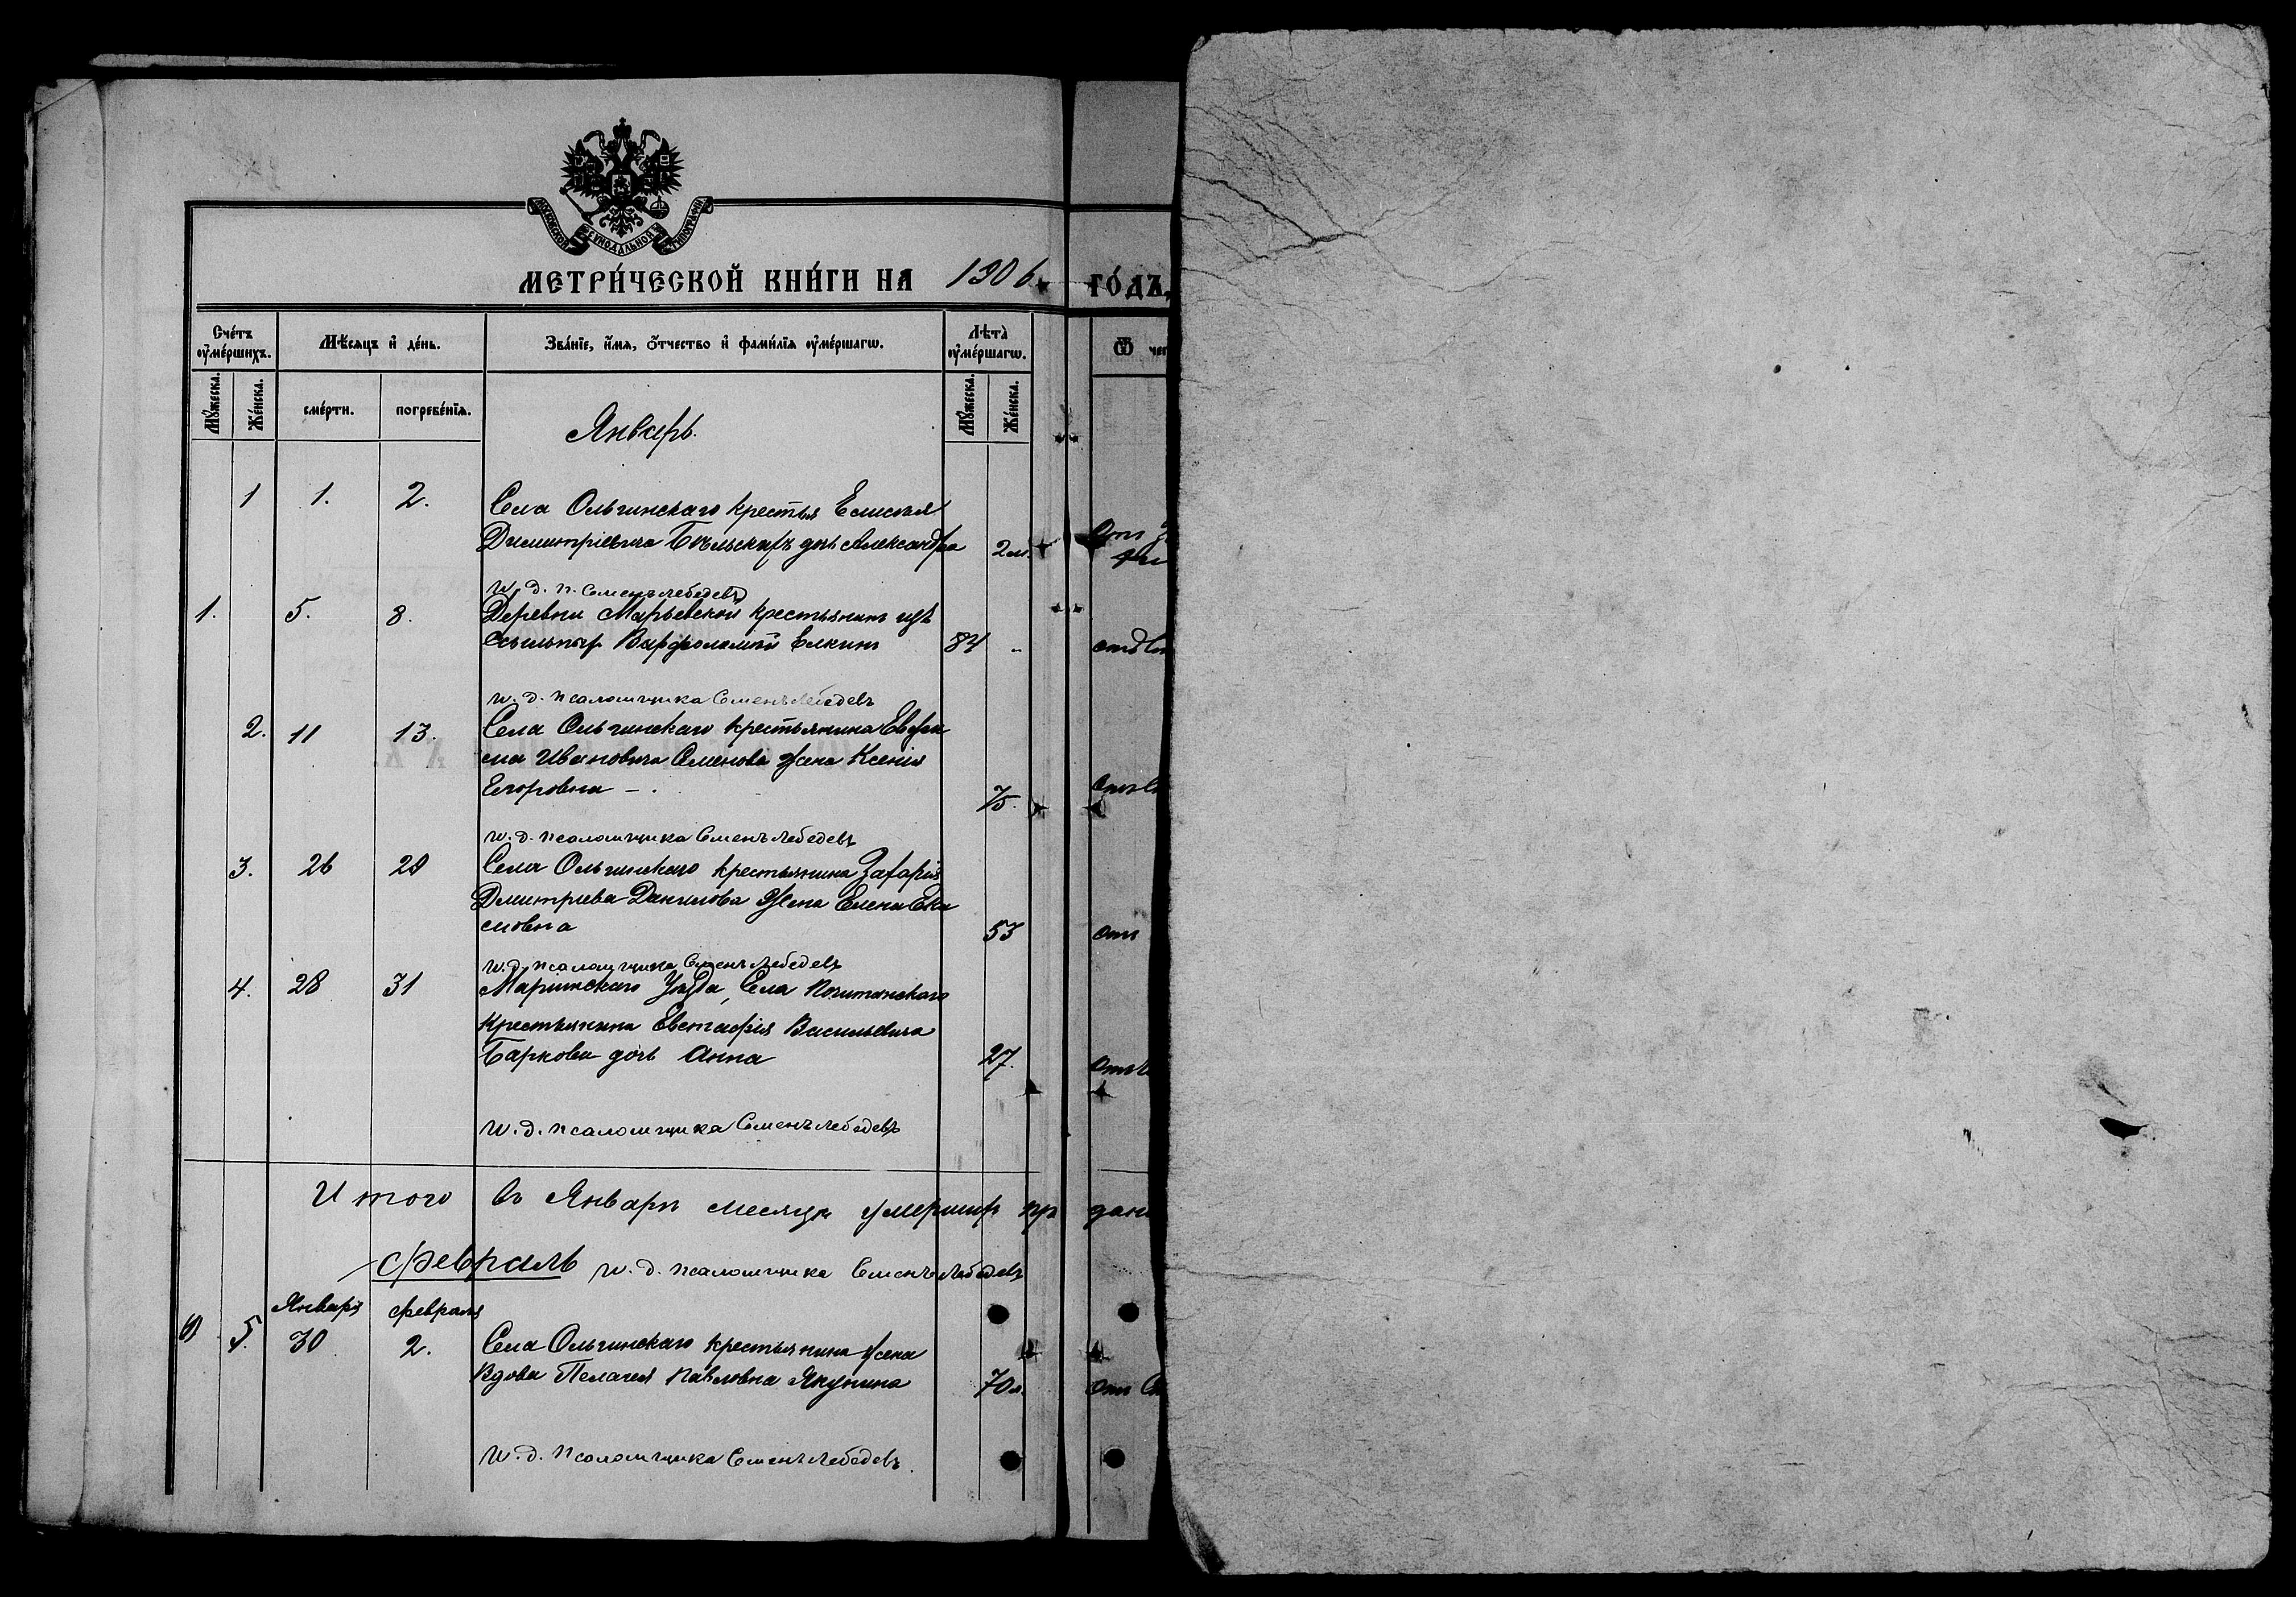 МОСКОВСКОЙ СѴНОДАЛЬНОЙ ТИПОГРАФІИ
МЕТРИ́ЧЕСКОЙ КНИ́ГИ НА 1906 ГО́ДЪ,
Сче́тъ ᲂу҆ме́ршихъ. Мѣ́сяцъ и҆ де́нь. Зва́нїе, и҆́мѧ, ѻ҆́тчество и҆ фами́лїѧ ᲂу҆ме́ршагѡ. Лѣта̀ ᲂу҆ме́ршагѡ. Ѿ чег
Мꙋ́жеска. Же́нска. сме́рти. погребе́нїѧ. Мꙋ́жеска. Же́нска.
Январь.
1 1. 2. Села Ольгинскаго крестья Елисея
Димитріевича дочь Александра 2м.
и. д. п. Семенъ Лебедевъ
1. 5. 8. Деревни Марьевской крестьянинъ изъ
ссыльныхъ Варфоломей Елкинъ 84 „
и. д. псаломщика Семенъ Лебедевъ
2. 11 13. Села Ольгинскаго крестьянина Евфи
ма Ивановича Семенова жена Ксенія
Егоровна – . 75.
и. д. псаломщика Семенъ Лебедевъ
3. 26 29 Села Ольгинскаго крестьянина Захарія
Дмитріева Данилова жена Елена
53 отъ
и. д. псаломщика Семенъ Лебедевъ
4. 28 31 Маріинскаго Уезда, Села Почитанскаго
Крестьянина Евстафія Васильевича
Баркова дочь Анна 27.
и. д. псаломщика Семенъ Лебедевъ
Итого въ Январѣ месяцѣ умершихъ
Февраль и. д. псаломщика Семенъ Лебедевъ
Января Февраля
5. 30 2. Села Ольгинскаго крестьянина жена
Вдова Пелагея Павловна Якунина 70 л. отъ
и. д. псаломщика Семенъ Лебедевъ.